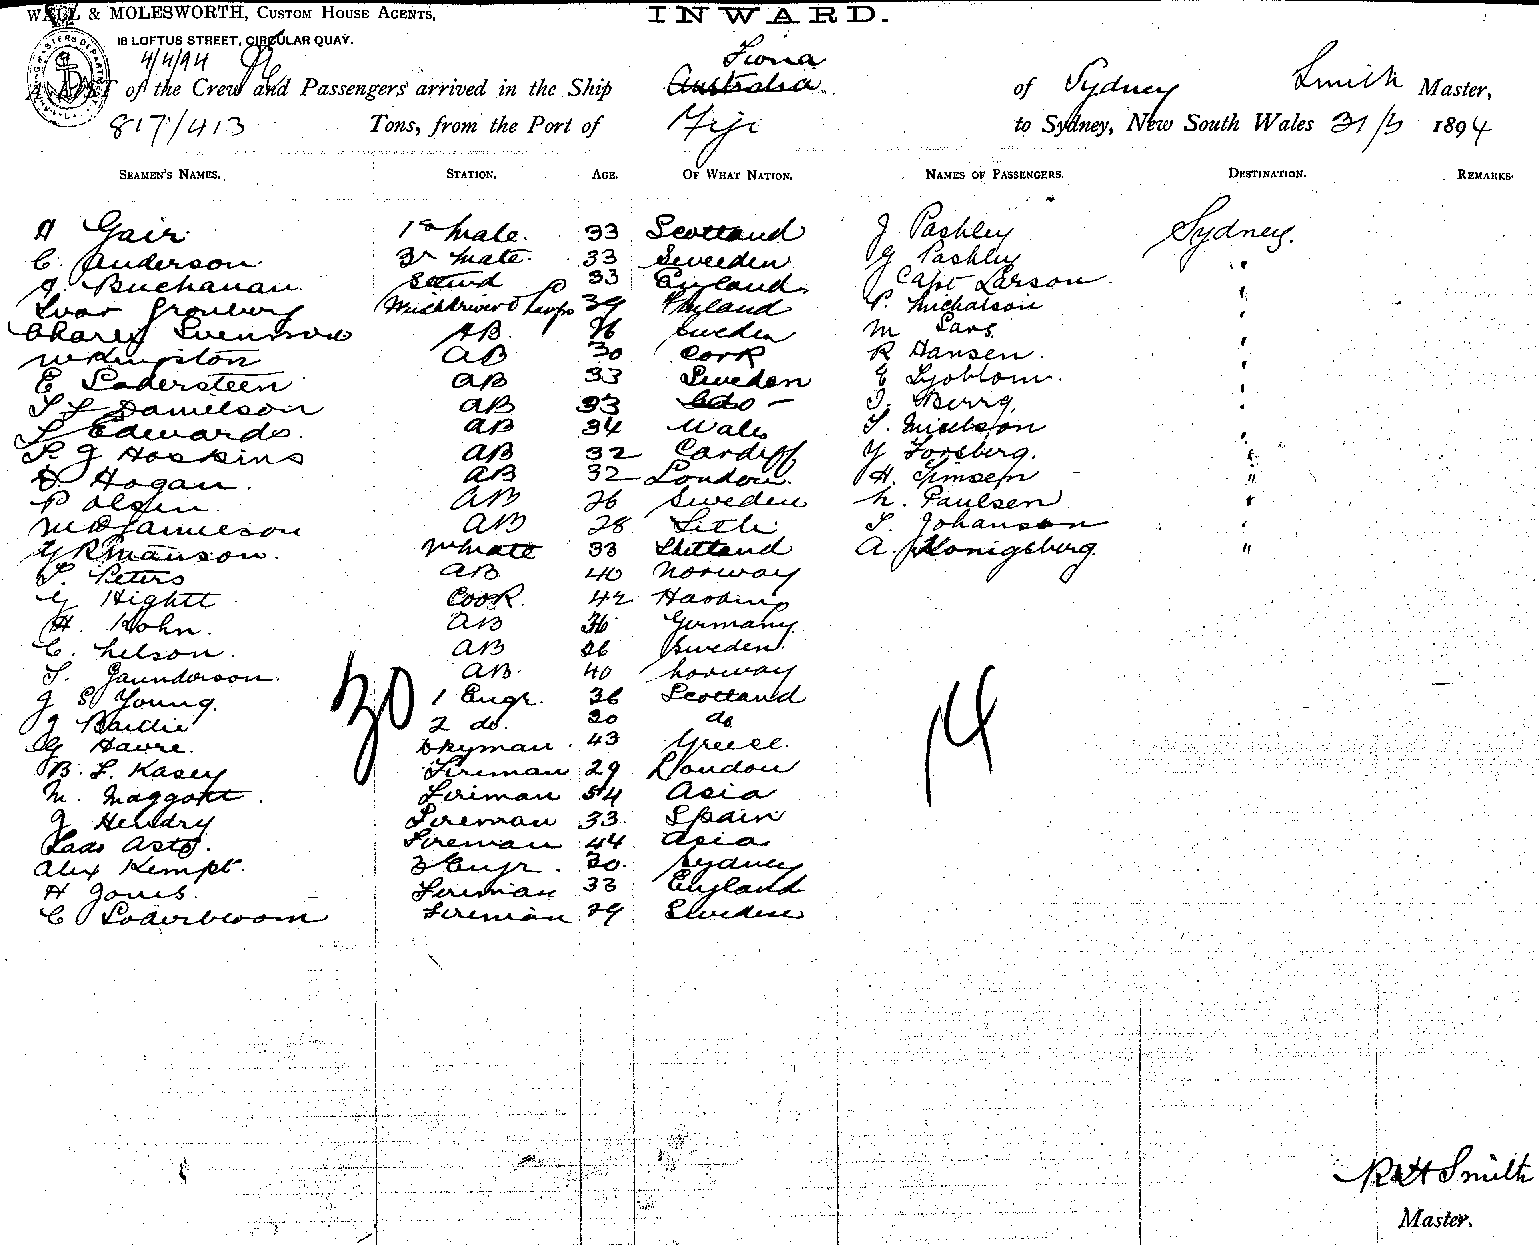 WALL & MOLESWORTH, CUSTOM HOUSE AGENTS,
INWARD.
18 LOFTUS STREET, CIRCULAR QUAY.
4/4/94
Fiona
A LIST of the Crew and Passengers arrived in the Ship Australia of Sydney Smith Master,
817/413 Tons, from the Port of Fiji to Sydney, New South Wales 31/3 1894
SEAMEN'S NAMES. STATION. AGE. OF WHAT NATION. NAMES OF PASSENGERS. DESTINATION. REMARKS.
A Gair 1st Mate. 33 Scotland J Pashley Sydney.
C. Anderson 2r mate. 33 Sweeden G Pashley "
J. Buchanan 33 England Capt Larson "
Ivar Gronberg 39 P. Michalson "
Charles Svenson AB 26 Sweden M Lars "
W Kingston AB 30 Cork R Hansen. "
E Sodersteen AB 33 Sweden E Syoblom. "
Danielson AB 33 do - J. Berry "
Edwards. AB 34 Wales "
J Hoskins AB 32 Cardiff Y Forsberg. "
D Hogan. AB 32 London. H. Simsen "
P Olsen AB 26 Sweden N. Paulsen "
Jamieson AB 28 Leith S. Johanson "
Manson. 33 Shetland A. Konigsberg. "
S. Peters AB 40 Norway
G Hightt Cook. 42
H. Kohn. AB 36 Germany
C. Nelson. AB 26 Sweden.
S. Gaunderson. AB. 40 Norway
J S Young. 1 Engr. 36 Scotland
J Bailie 2 do. 30 do
G Havre. Dkyman. 43 Greece.
B. L. Kasey Fireman 29 London
M. Maggott. Fireman 54 Asia
J Hendry Fireman 33 Spain
Lado Asto. Fireman 44 Asia
Alex Kempt. 3 Engr. 30. Sydney
H Jones. Fireman 33 England
C Soderbloom Fireman 29 Sweden
30
14
R H Smith
Master.